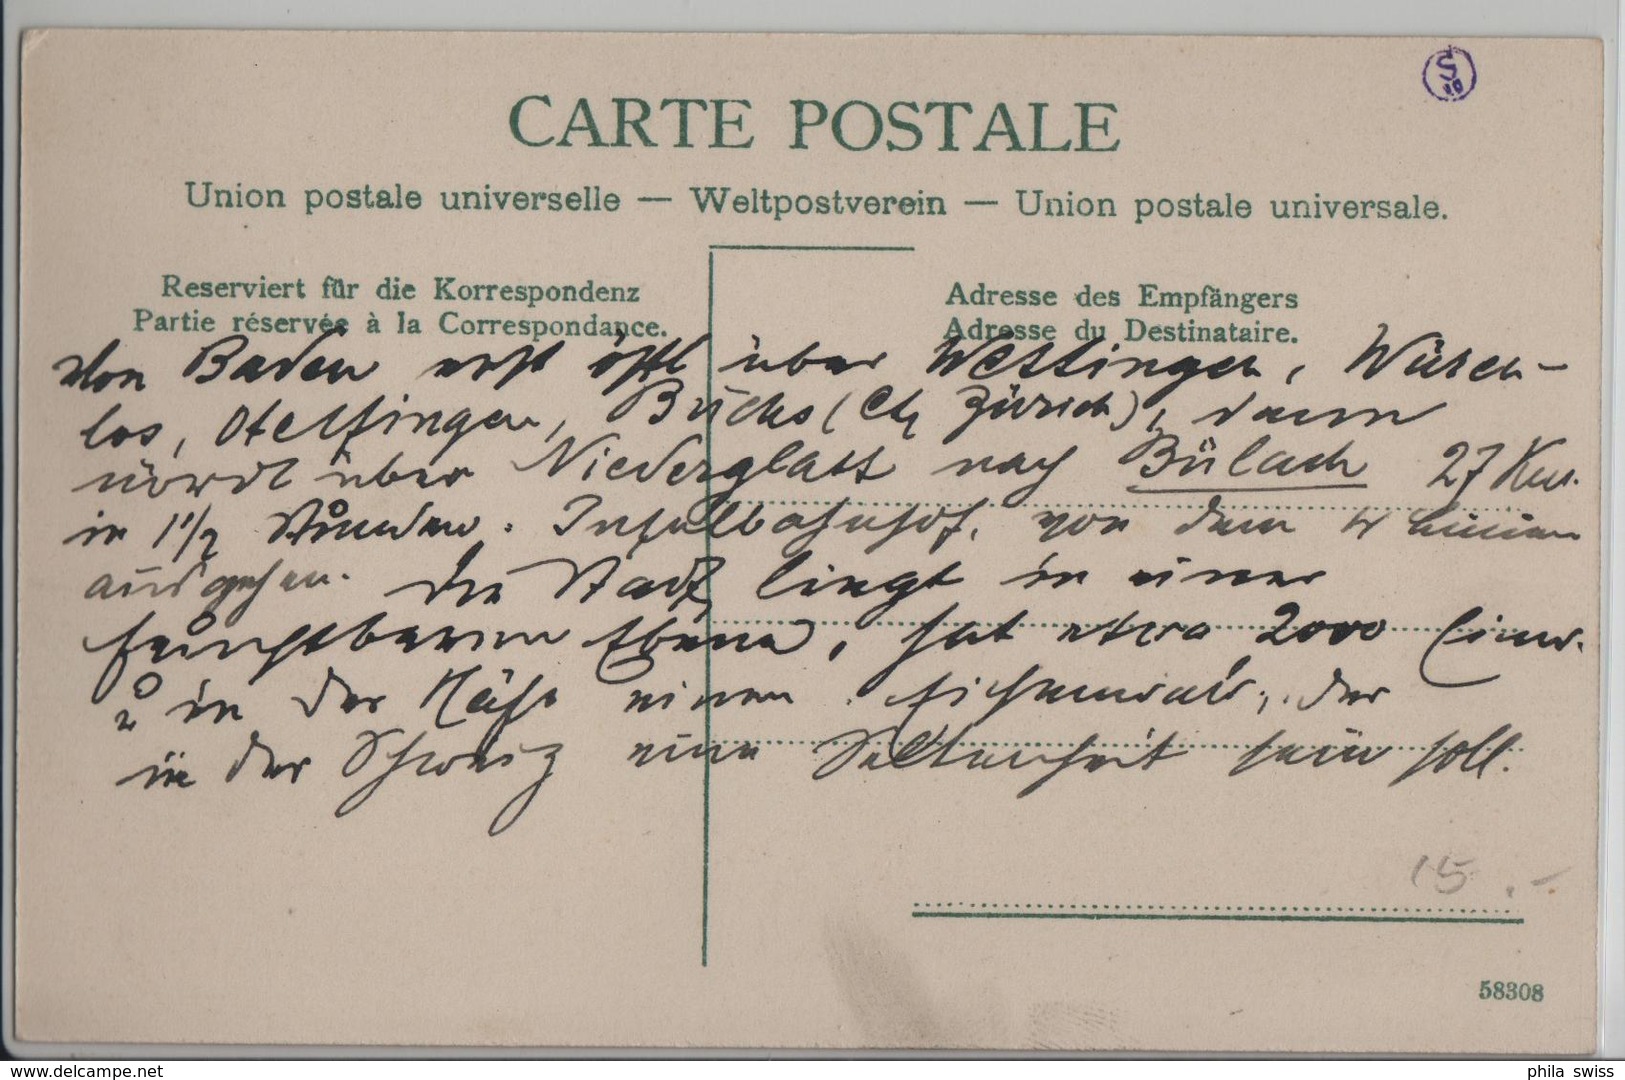 CARTE POSTALE
Union postale universelle — Weltpostverein — Union postale universale.
Reserviert für die Korrespondenz
Partie réservée à la Correspondance.
Adresse des Empfängers
Adresse du Destinataire.
Von Baden erst östl über Wettingen, Würen-
los, Otelfingen, Buchs (Ct Zürich), dann
nördl über Niederglatt nach Bülach 27 Km.
in 1 1/2 Stunden. Inselbahnhof, von dem 4 Linien
ausgehen. Die Stadt liegt in einer
fruchtbaren Ebene, hat etwa 2000 Einw.
u in der Nähe einen Eichenwald, der
in der Schweiz eine Seltenheit sein soll.
15.-
58308
phila swiss